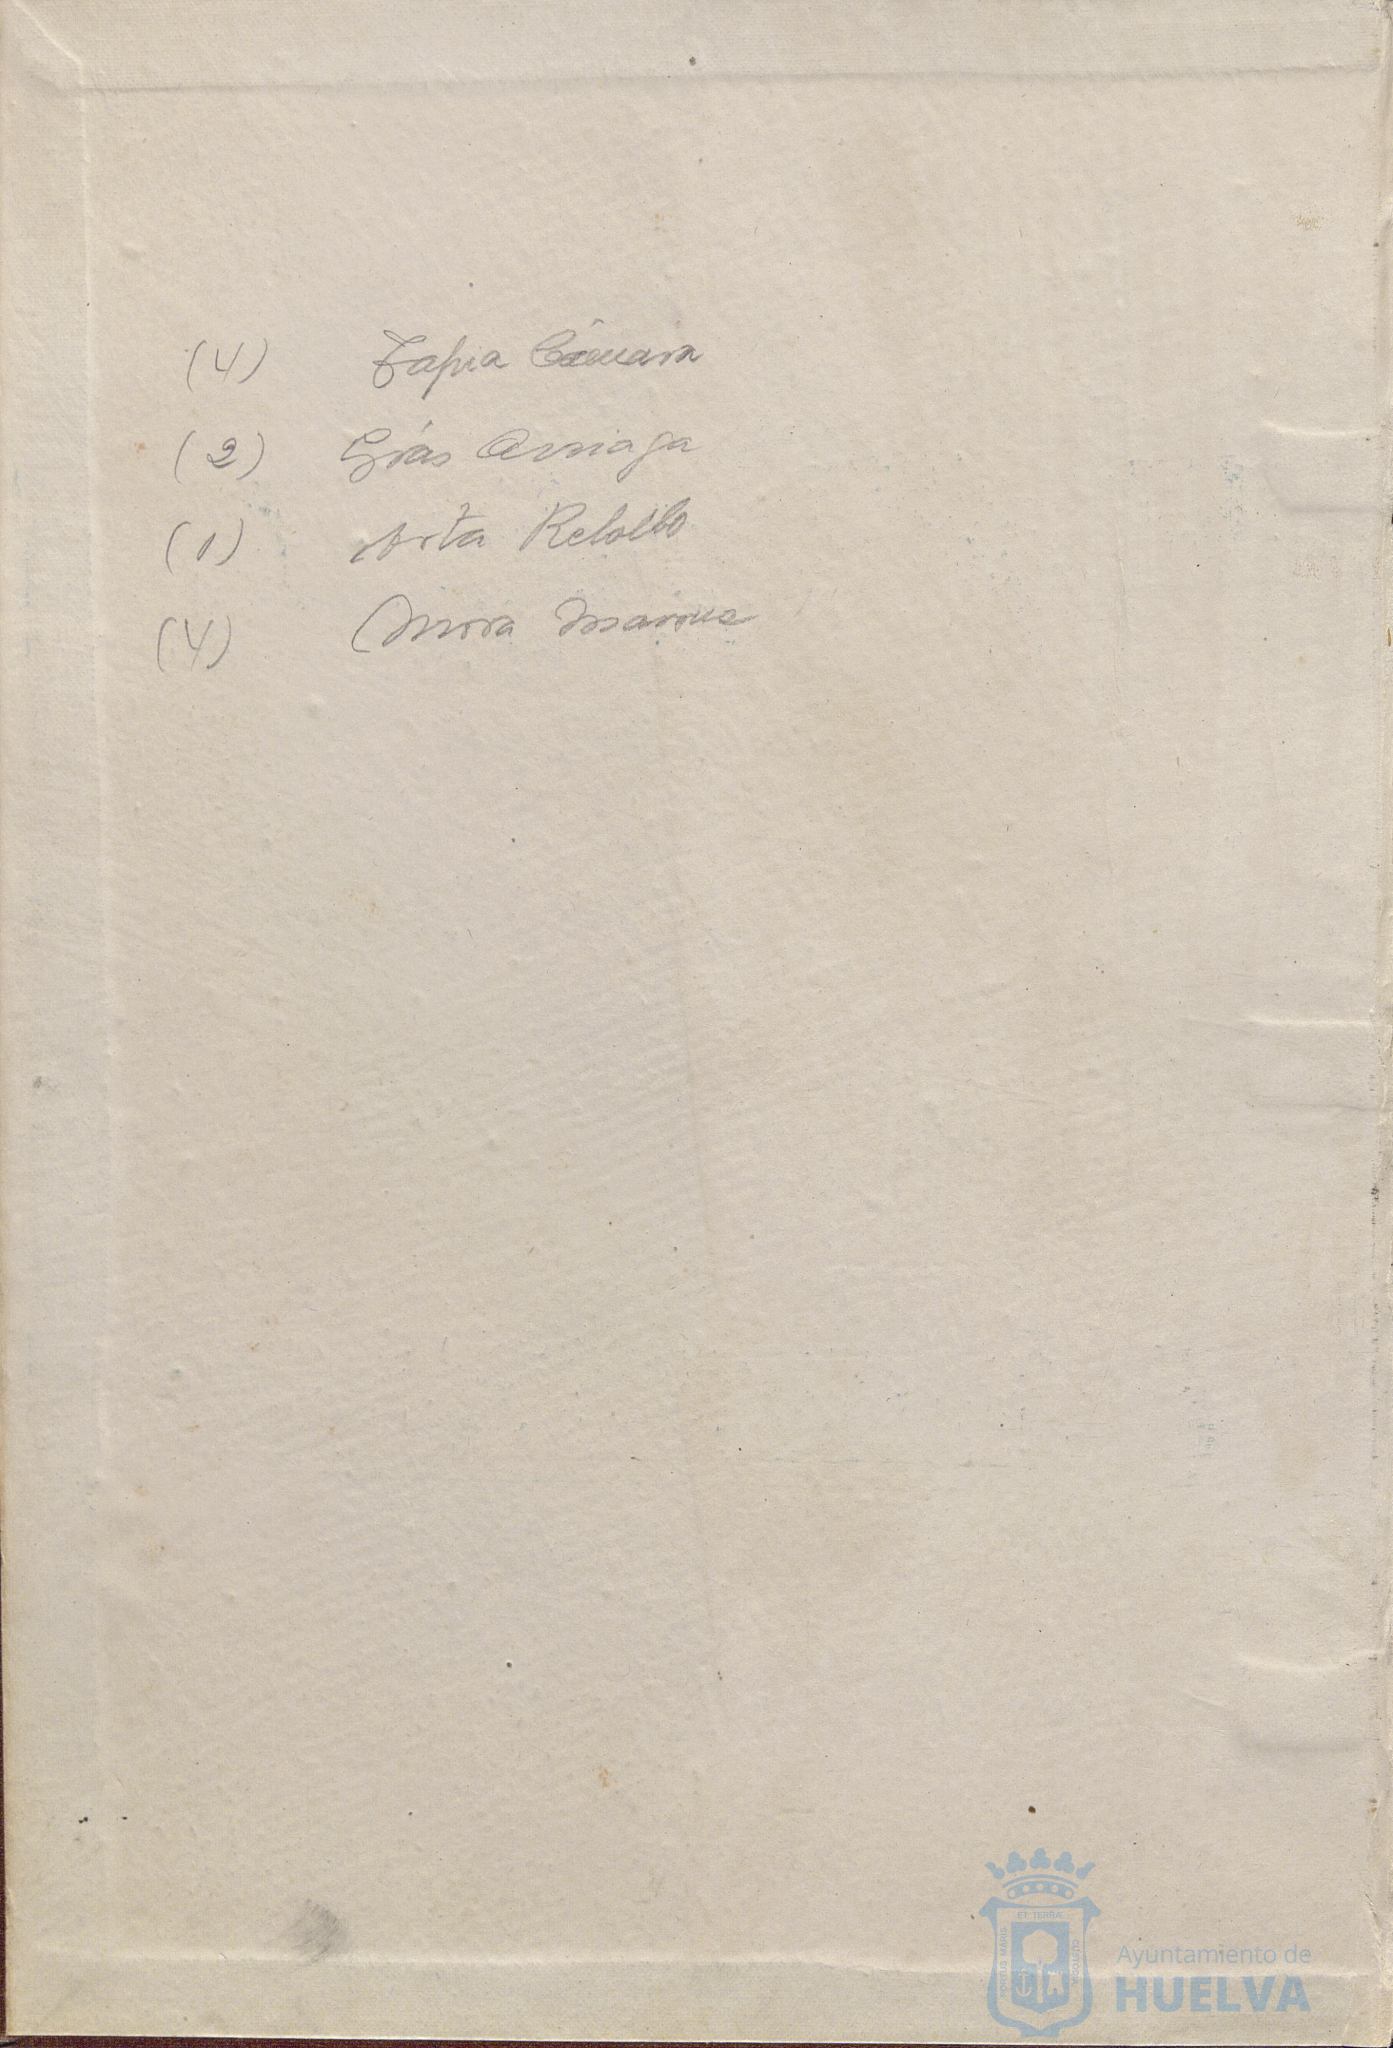 (4) Tapia Cámara
(2) Grás Arriaga
(1) Arta Rebollo
(4) Mora
PORTUS MARIS
ET TERRÆ
CUSTODIA
Ayuntamiento de
HUELVA